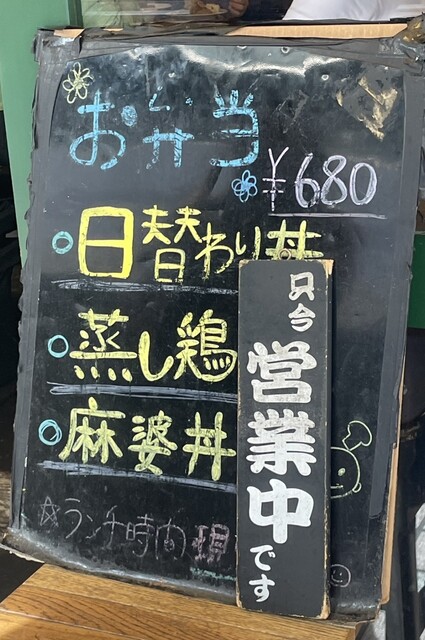 お弁当
¥680
日替わり丼
蒸し鶏
麻婆丼
☆ランチ時間 現
只今
営業中
です